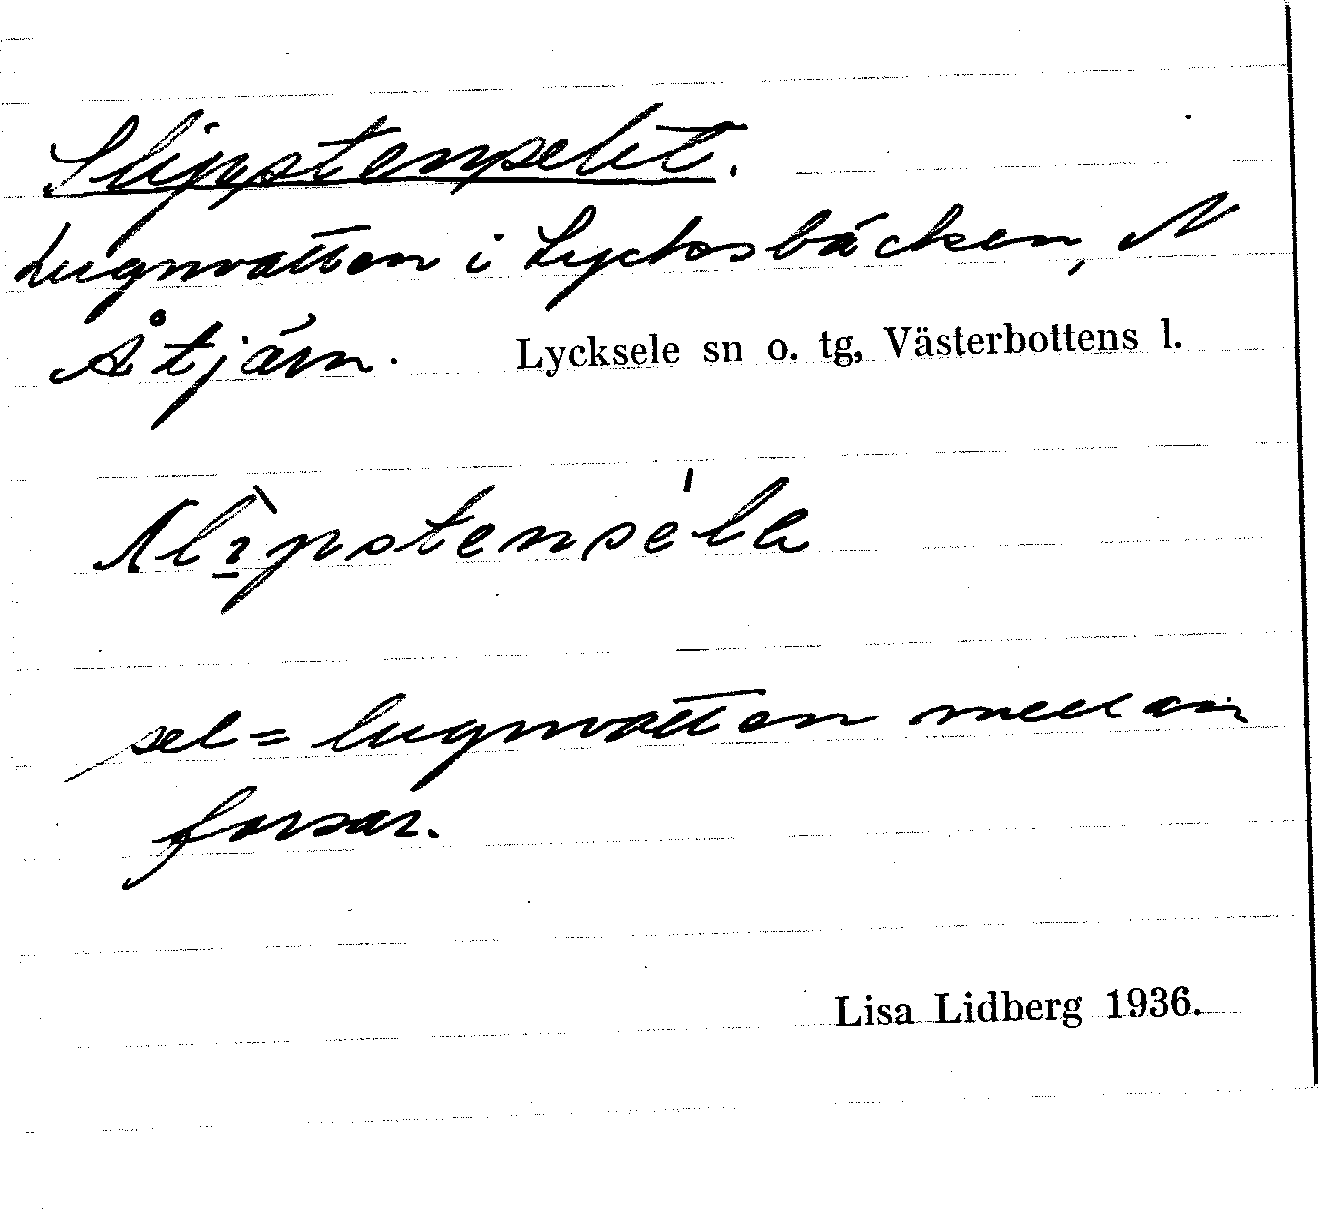 Slipstenselet.
Lugnvatten i Lycksbäcken, N
Åtjärn. Lycksele sn o. tg, Västerbottens l.
slı̠̀pstense̍la
sel = lugnvatten mellan
forsar.
Lisa Lidberg 1936.